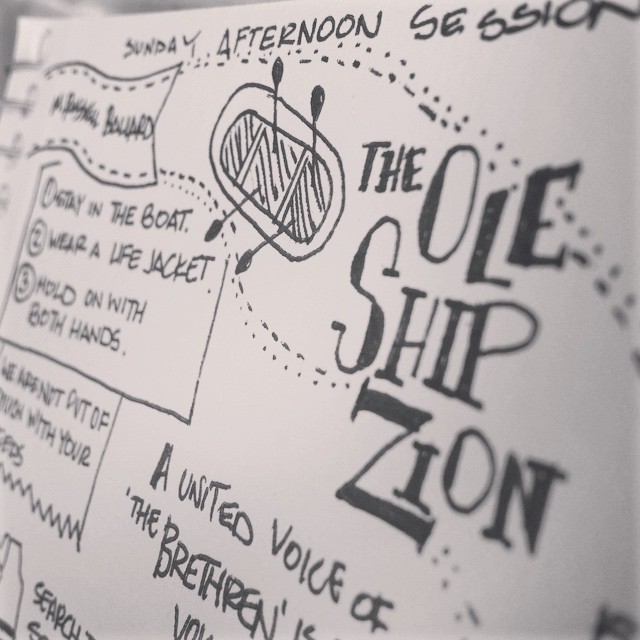 SUNDAY AFTERNOON SESSION
M. RUSSELL BALLARD
① STAY IN THE BOAT.
② WEAR A LIFE JACKET
③ HOLD ON WITH
BOTH HANDS.
THE OLE
SHIP
ZION
WE ARE NOT OUT OF
TOUCH WITH YOUR
A UNITED VOICE OF
'THE BRETHREN' IS
SEARCH